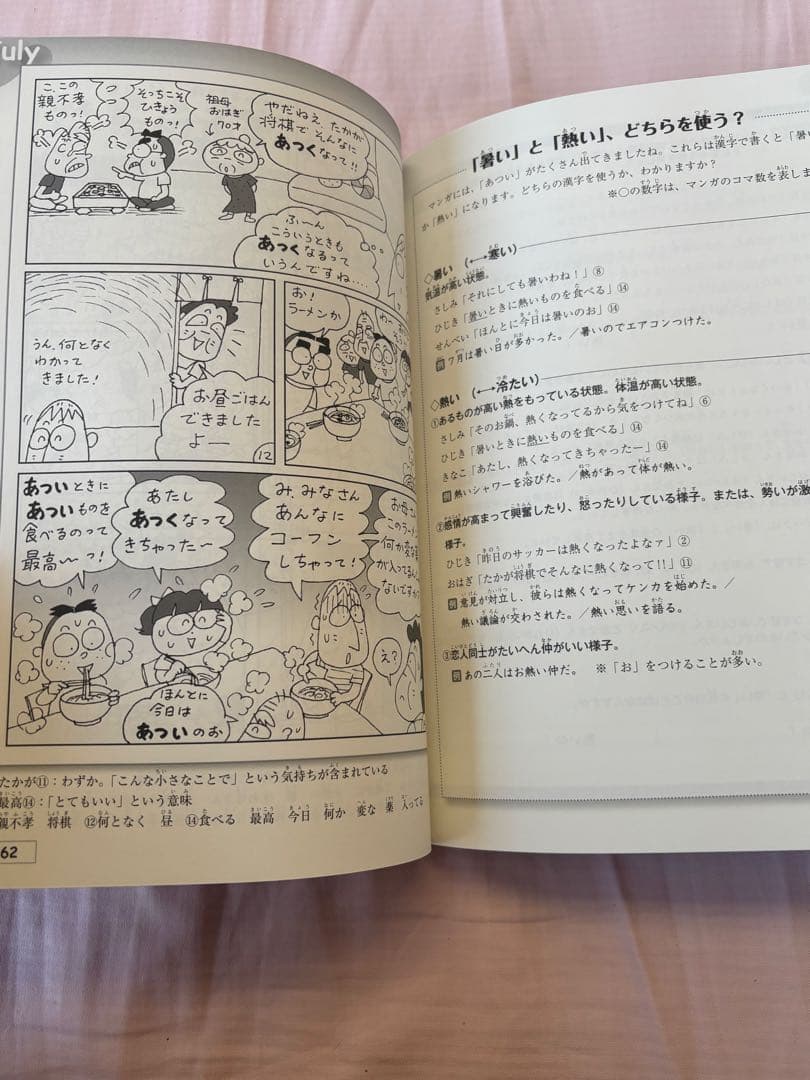 July
こ、この
親不孝
ものっ！
そっちこそ
ひきょう
ものっ！
祖母
おはぎ
70才
やだねえ たかが
将棋でそんなに
あつくなって！！
ふーん
こういうときも
あつくなるって
いうんですね‥‥
うん、何となく
わかって
きました！
お昼ごはん
できました
よー
12
お！
ラーメンか
わー
あついときに
あついものを
食べるのって
最高〜っ！
あたし
あつくなって
きちゃった〜
み、みなさん
あんなに
コーフン
しちゃって！
お母さん
このラー
何か変な
が入ってるん
ないですか
え？
ほんとに
今日は
あついのお
たかが⑪：わずか。「こんな小さなことで」という気持ちが含まれている
最高⑭：「とてもいい」という意味
親不孝 将棋 ⑫何となく 昼 ⑭食べる 最高 今日 何か 変な 薬 入ってる
62
「暑い」と「熱い」、どちらを使う？
マンガには、「あつい」がたくさん出てきましたね。これらは漢字で書くと「暑い
か「熱い」になります。どちらの漢字を使うか、わかりますか？
※○の数字は、マンガのコマ数を表しま
◇暑い （←→寒い）
気温が高い状態。
さしみ「それにしても暑いわね！」⑧
ひじき「暑いときに熱いものを食べる」⑭
せんべい「ほんとに今日は暑いのお」⑭
例 7月は暑い日が多かった。／暑いのでエアコンつけた。
◇熱い （←→冷たい）
①あるものが高い熱をもっている状態。体温が高い状態。
さしみ「そのお鍋、熱くなってるから気をつけてね」⑥
ひじき「暑いときに熱いものを食べる」⑭
きなこ「あたし、熱くなってきちゃったー」⑭
例 熱いシャワーを浴びた。／熱があって体が熱い。
②感情が高まって興奮したり、怒ったりしている様子。または、勢いが激
様子。
ひじき「昨日のサッカーは熱くなったよなァ」②
おはぎ「たかが将棋でそんなに熱くなって!!」⑪
例 意見が対立し、彼らは熱くなってケンカを始めた。／
熱い議論が交わされた。／熱い思いを語る。
③恋人同士がたいへん仲がいい様子。
例 あの二人はお熱い仲だ。 ※「お」をつけることが多い。